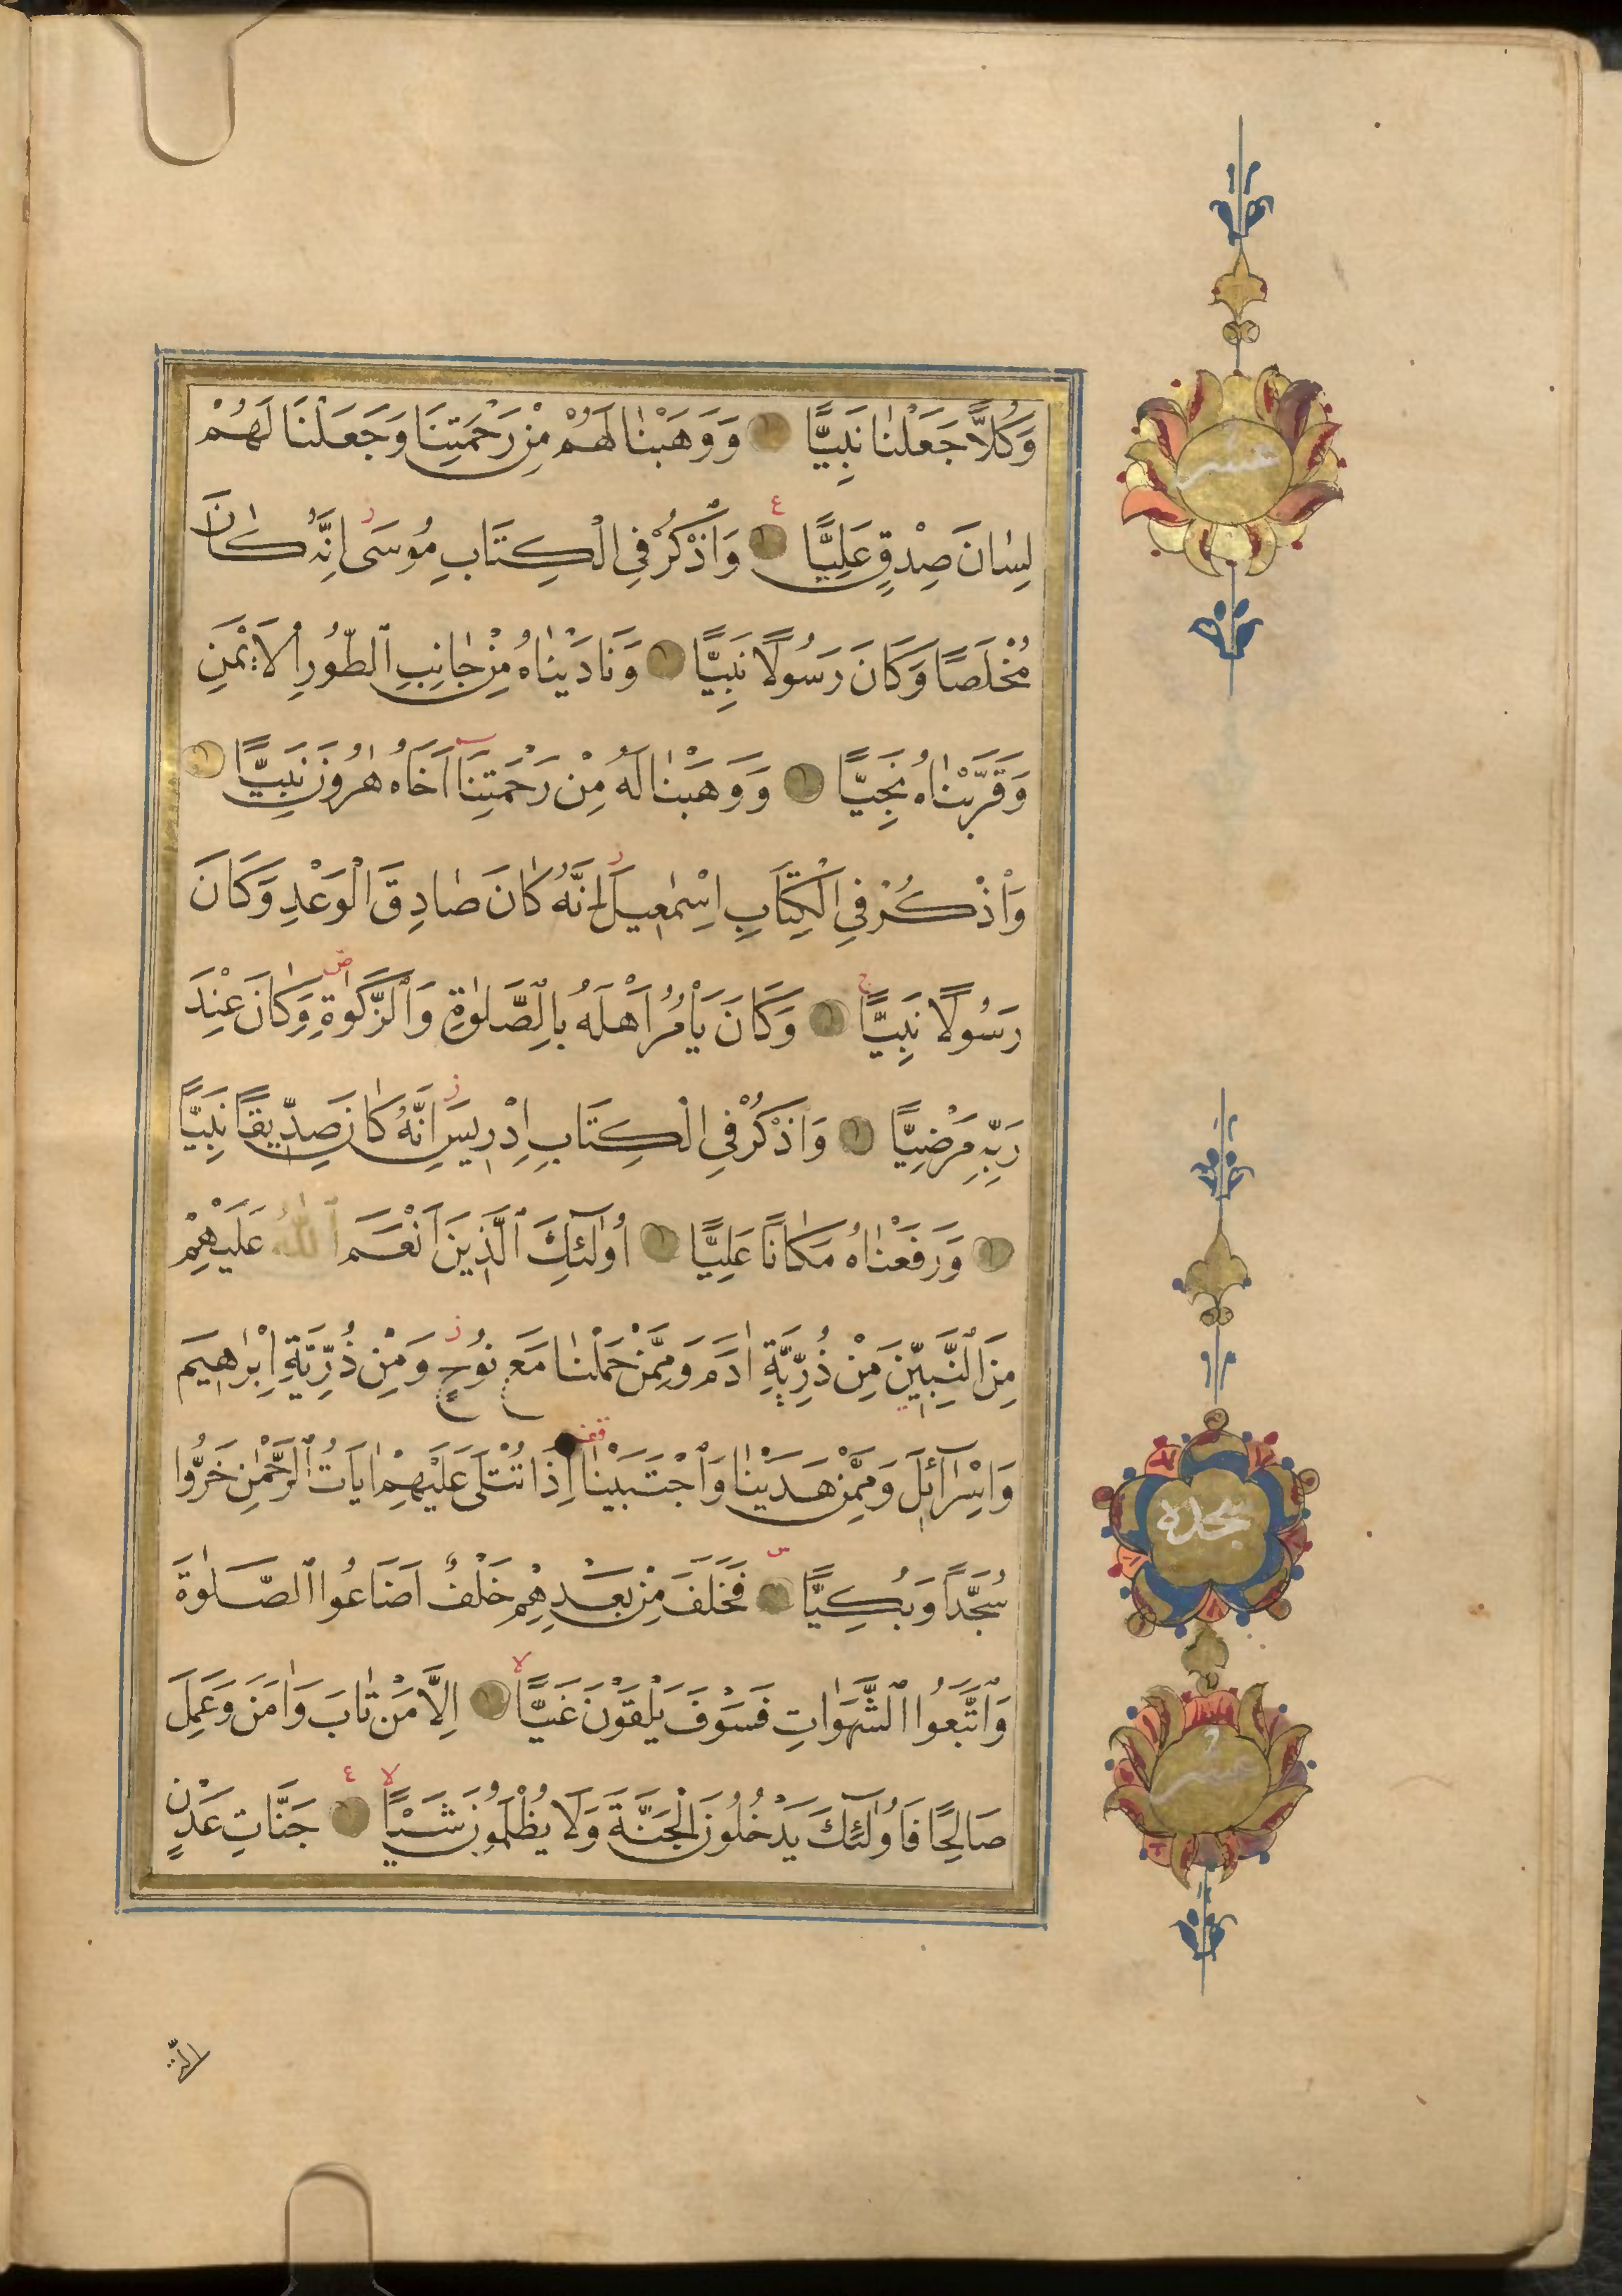 وَكُلًّا جَعَلْنَا نَبِيًّا وَوَهَبْنَا لَهُمْ مِنْ رَحْمَتِنَا وَجَعَلْنَا لَهُمْ
عشر
لِسَانَ صِدْقٍ عَلِيًّا ع وَاذْكُرْ فِي الْكِتَابِ مُوسَى ز اِنَّهُ كَانَ
مُخْلَصًا وَكَانَ رَسُولًا نَبِيًّا وَنَادَيْنَاهُ مِنْ جَانِبِ الطُّورِ الْاَيْمَنِ
وَقَرَّبْنَاهُ نَجِيًّا وَوَهَبْنَا لَهُ مِنْ رَحْمَتِنَا اَخَاهُ هٰرُونَ نَبِيًّا
وَاذْكُرْ فِي الْكِتَابِ اِسْمٰعِيلَ ز اِنَّهُ كَانَ صَادِقَ الْوَعْدِ وَكَانَ
رَسُولًا نَبِيًّا ج وَكَانَ يَاْمُرُ اَهْلَهُ بِالصَّلٰوةِ وَالزَّكٰوةِ ص وَكَانَ عِنْدَ
رَبِّهِ مَرْضِيًّا وَاذْكُرْ فِي الْكِتَابِ اِدْرِيسَ ز اِنَّهُ كَانَ صِدِّيقًا نَبِيًّا
وَرَفَعْنَاهُ مَكَانًا عَلِيًّا اُولٰٓئِكَ الَّذِينَ اَنْعَمَ اللّٰهُ عَلَيْهِمْ
مِنَ النَّبِيِّنَ مِنْ ذُرِّيَّةِ اٰدَمَ وَمِمَّنْ حَمَلْنَا مَعَ نُوحٍ ز وَمِنْ ذُرِّيَّةِ اِبْرٰهِيمَ
وَاِسْرَآئِلَ وَمِمَّنْ هَدَيْنَا وَاجْتَبَيْنَا اِذَا تُتْلٰى عَلَيْهِمْ اٰيَاتُ الرَّحْمٰنِ خَرُّوا
سجده
سُجَّدًا وَبُكِيًّا فَخَلَفَ مِنْ بَعْدِهِمْ خَلْفٌ اَضَاعُوا الصَّلٰوةَ
وَاتَّبَعُوا الشَّهَوَاتِ فَسَوْفَ يَلْقَوْنَ غَيًّا لا اِلَّا مَنْ تَابَ وَاٰمَنَ وَعَمِلَ
عشر
صَالِحًا فَاُولٰٓئِكَ يَدْخُلُونَ الْجَنَّةَ وَلَا يُظْلَمُونَ شَيْـًٔا لا ع جَنَّاتِ عَدْنٍ
الَّتِي